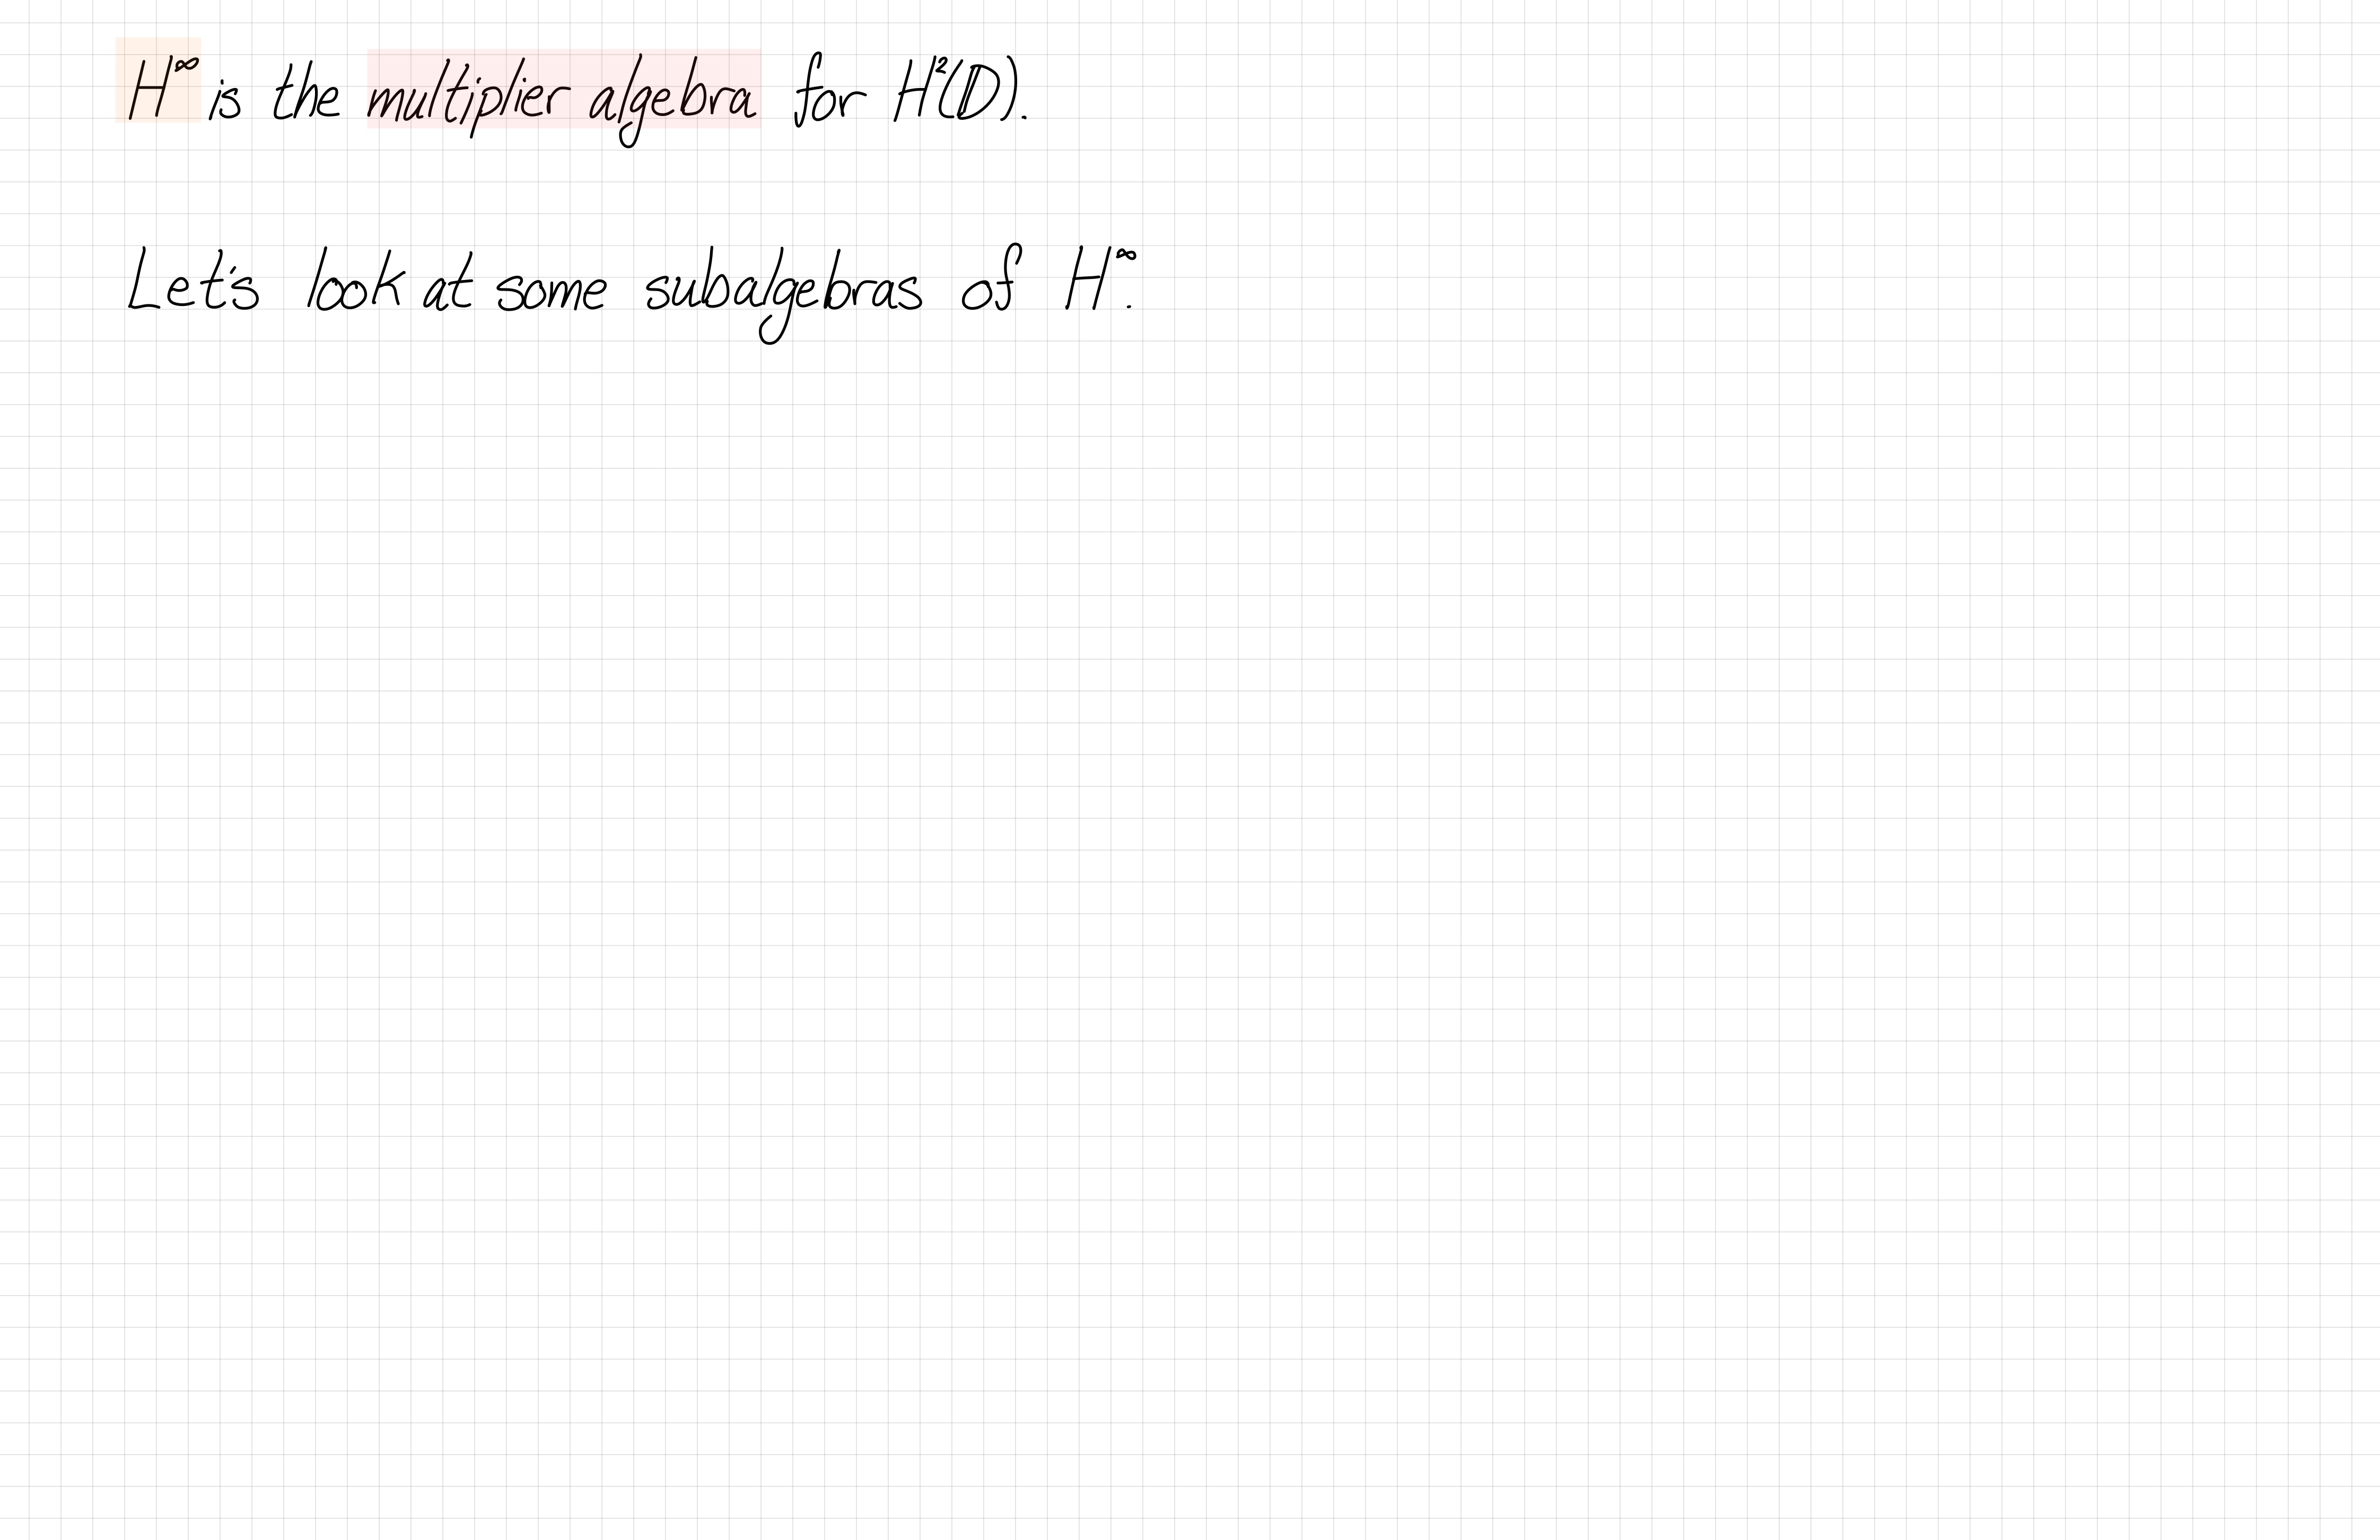 H^∞ is the multiplier algebra for H²(𝔻).
Let's look at some subalgebras of H^∞.